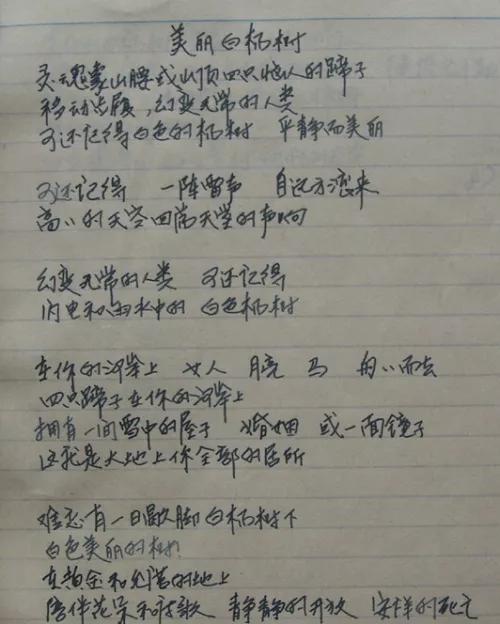 美丽白杨树
灵魂象山腰或山顶四只恼人的蹄子
移动步履，幻变无常的人类
可还记得白色的杨树 平静而美丽
可还记得 一阵雷声 自远方滚来
高高的天空回荡天堂的声响
幻变无常的人类 可还记得
闪电和雨水中的 白色杨树
在你的河岸上 女人 月亮 马 匆匆而去
四只蹄子在你的河岸上
拥有一间雪中的屋子 婚姻 或一面镜子
这就是大地上你全部的居所
难忘有一日歇脚白杨树下
白色美丽的树！
在黄金和允诺的地上
陪伴花朵和诗歌 静静的开放 安详的死亡